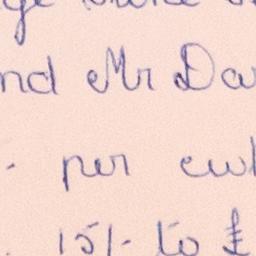 nd Mr Da
- per cwt
15/- to £